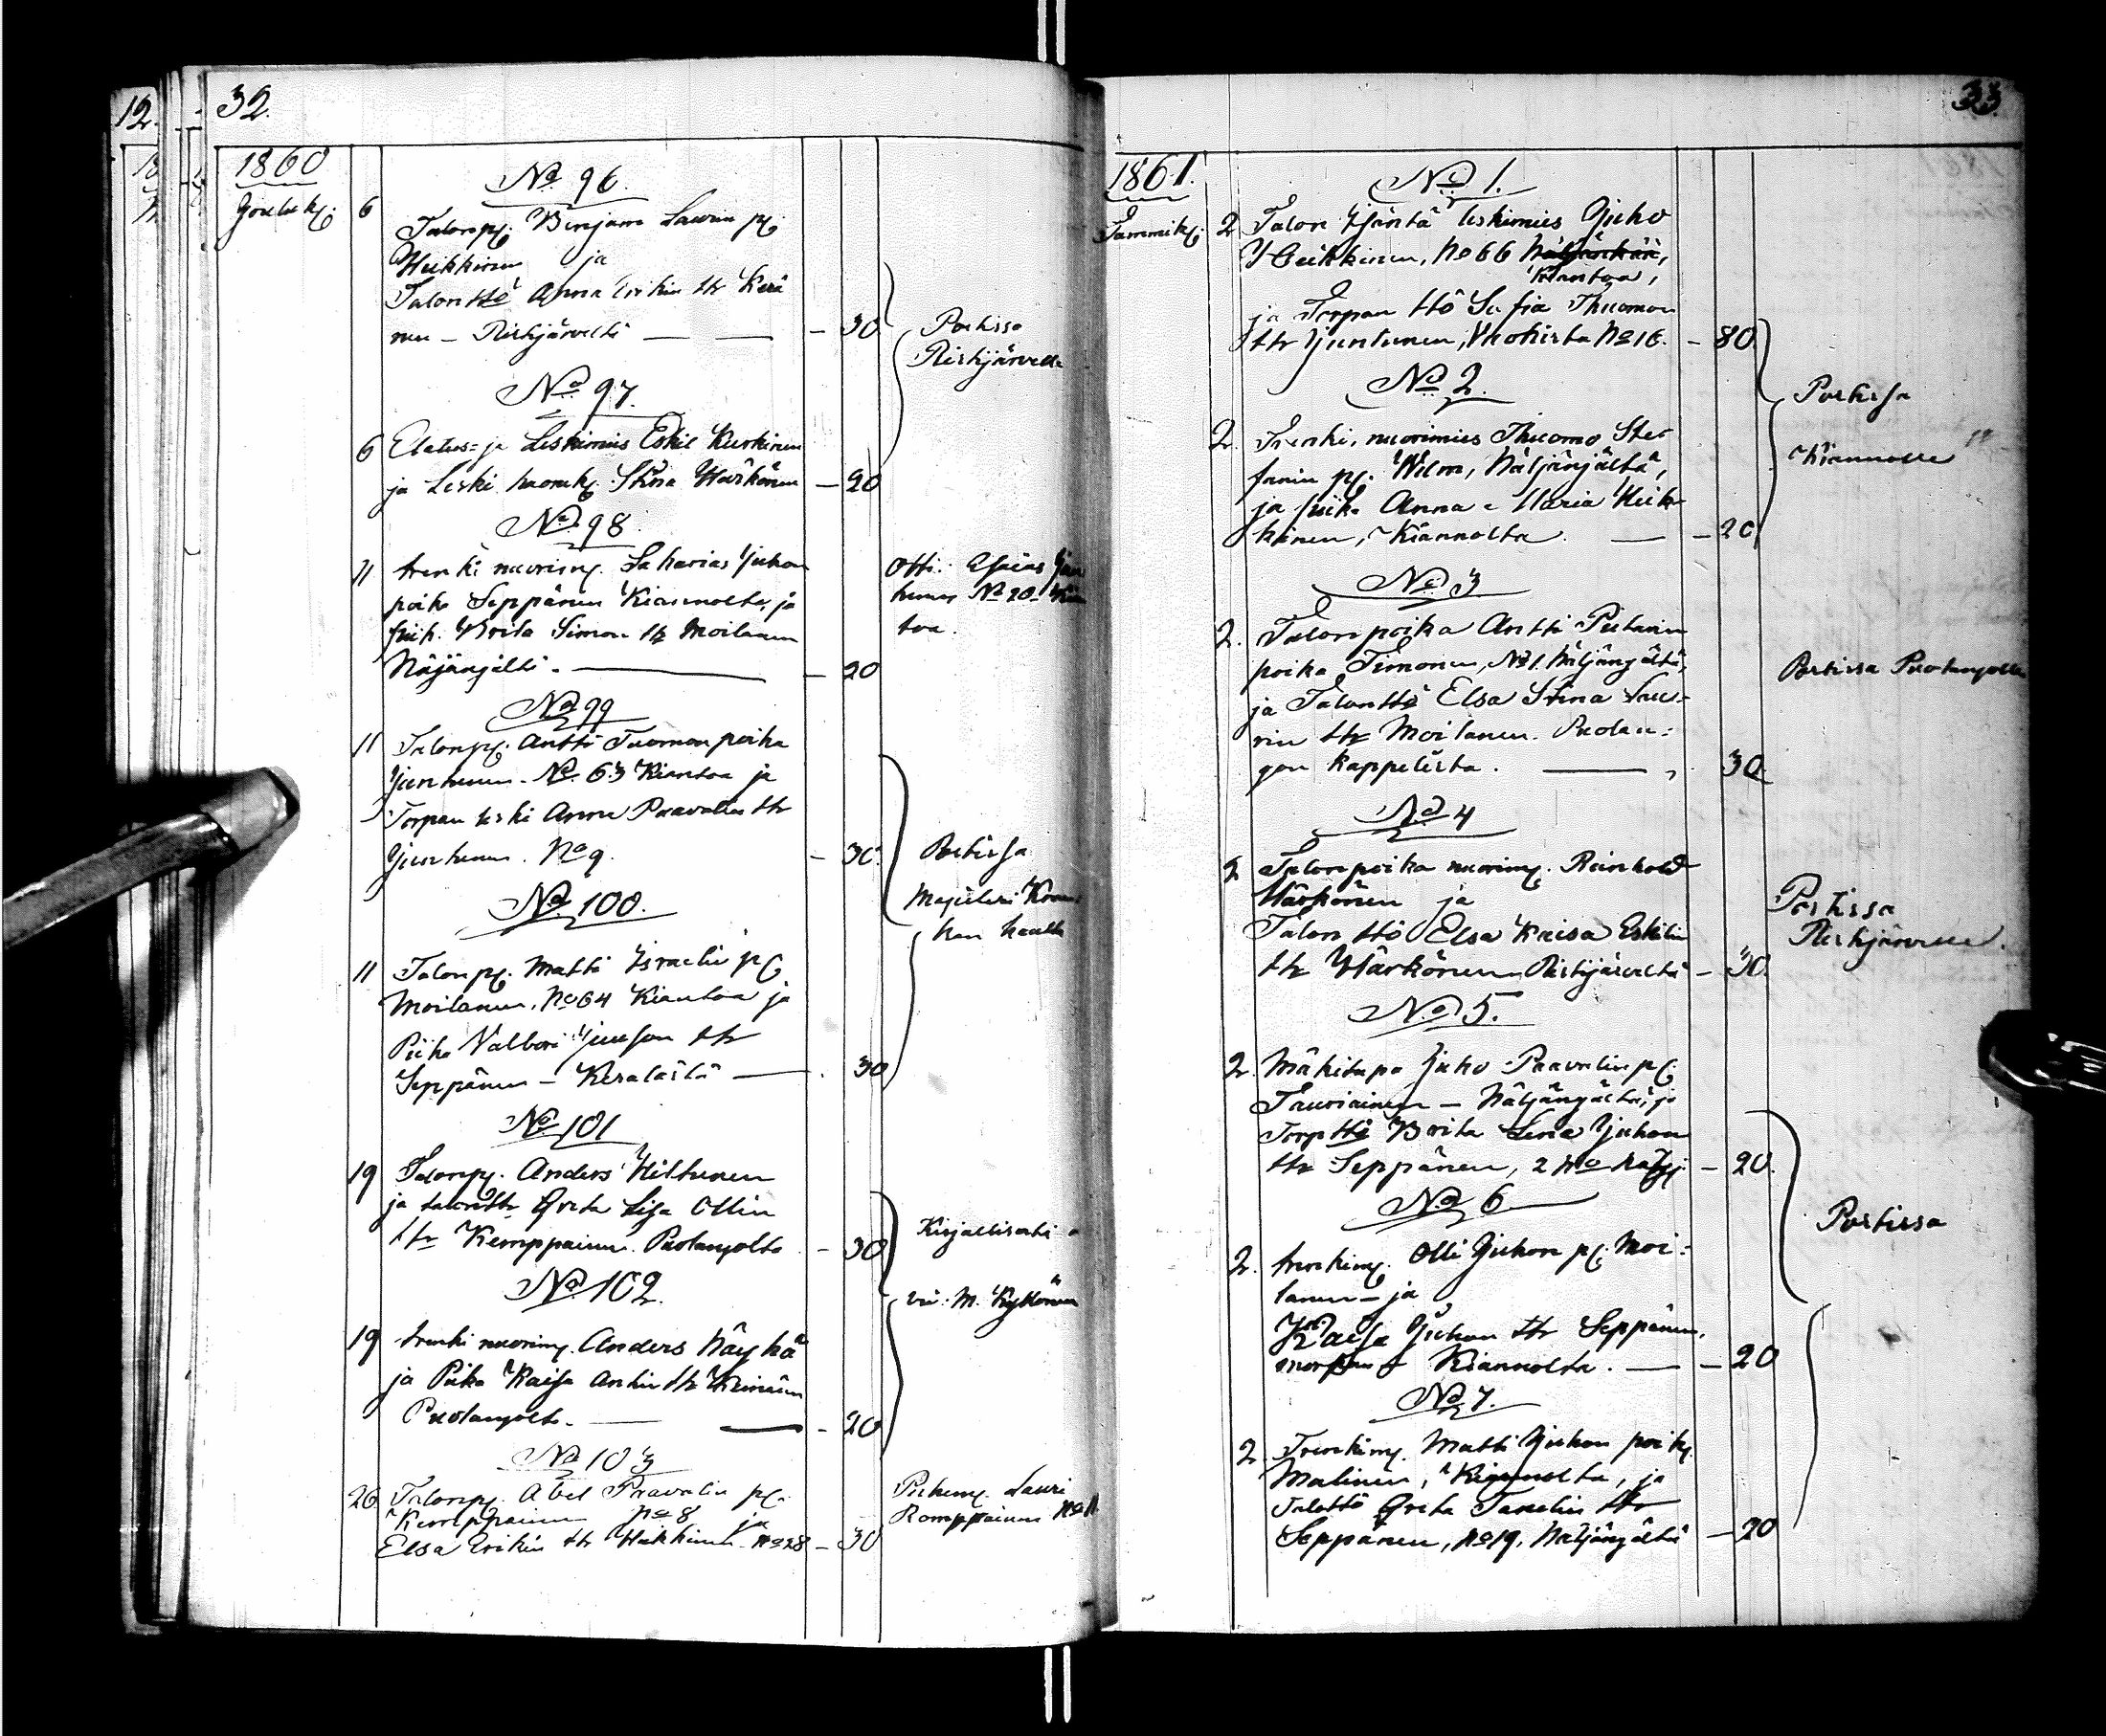 12.
32.
1860
Jouluk.
No 96.
6
Talonp. Benjam Laurin p.
Heikkinen ja
Talonttö Anna Erikin ttr Kerä
nen — Ristijärveltä — — 30
Postissa
Ristijärvelle
No 97.
6 Elatus- ja Leskimies Eskil Kurkinen
ja Leski Stina Härkönen — 20
No 98.
11 trenki nuorim. Sakarias Juhon
poika Seppänen Kiannolta, ja
piik. Brita Simon ttr Moilanen
Näljänjältä. — 20
Otti. Esaias
No 20
toa.
No 99
11 Talonp. Antti Tuomon poika
Juntunen. No 63 Kiantoa ja
Torpan leski Anna Paavalin ttr
Juntunen. No 9. — 30.
Postissa
Majuteri
kan kautta
No 100.
11 Talonp. Matti Israelin p.
Moilanen. No 64 Kiantoa ja
Piika Valbori Juuson ttr
Seppänen — 30
No 101
19 Talonp. Anders Hiltunen
ja talontr. Greta Lisa Ollin
ttr Kemppainen. Puolangolta — 30
Kirjallisesti
vii. M. Kyllönen
No 102.
19 trenki nuorim. Anders Näykä
ja Piika Kaisa Antin ttr Heinänen
Puolangolta. — — 20
No 103
26 Talonp. Abel Paavalin p.
Kemppainen No 8, ja
Elsa Erikin ttr Heikkinen No 28 — 30
Lauri
Romppainen No 11
33.
1861.
Tammik.
No 1.
2 Talon isäntä leskimies Juho
Heikkinen, No 66
Kiantoa,
ja Torpan ttö Sofia Thuomon
ttr Juntunen, Vuokista No 16. — 80.
No 2.
2. Trenki, nuorimies Thuomo Ste-
fanin p. Wilm, Näljänjältä,
ja piika Anna Maria Heik-
kinen, Kiannolta. — — 20
Postissa
Kiannolle
No 3
2. Talonpoika Antti Pietarin
poika Timonen, No 1. Näljängältä,
ja Talonttö Elsa Stina Lau-
rin ttr Moilanen. Puolan-
gon kappelista. — 30
Postissa Puolangolle
No 4
2 Talonpoika nuorim. Reinhold
Härkönen ja
Talon ttö Elsa Kaisa Eskilin
ttr Härkönen Ristijärveltä — 30.
Postissa
Ristijärvelle.
No 5.
2. Mäkitupa Juho Paavalin p.
Tauriainen — Näljängältä, ja
Torpttö Brita Lena Juhon
ttr Seppänen, 2 No Näljj. — 20.
No 6
2. trenkim. Olli Juhon p. Moi-
lanen — ja
Kaisa Juhon ttr Seppänen,
Kiannolta. — — 20
Postissa
No 7.
2. Trenkim. Matti Juhon poik.
Malinen, Kiannolta, ja
Talottö Greta Tanelin ttr
Seppänen, No 19, Näljängältä — 20